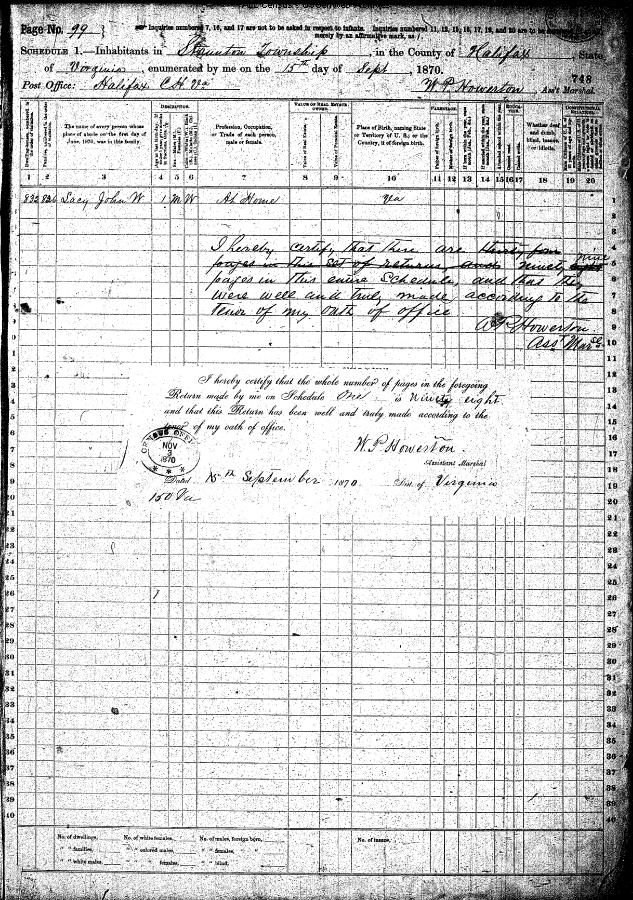 Page No. 99
Inquiries numbered 7, 16, and 17 are not to be asked in respect to infants. Inquiries numbered 11, 12, 15, 16, 17, 19, and 20 are to be answered
merely by an affirmative mark, as /
SCHEDULE 1.—Inhabitants in Staunton Township, in the County of Halifax, State
of Virginia, enumerated by me on the 15th day of Sept, 1870.
748
Post Office: Halifax C.H. Va
W. P. Howerton, Ass't Marshal.
DESCRIPTION.
VALUE OF REAL ESTATE OWNED.
The name of every person whose place of abode on the first day of June, 1870, was in this family.
Profession, Occupation, or Trade of each person, male or female.
Value of Real Estate.
Place of Birth, naming State or Territory of U. S.; or the Country, if of foreign birth.
Whether deaf and dumb, blind, insane, or idiotic.
1 2 3 4 5 6 7 8 9 10 11 12 13 14 15 16 17 18 19 20
Lacy John W 1 M W At Home Va
I hereby certify that there are thirty four
pages in this set of returns, and ninety eight nine
pages in this entire Schedule, and that they
were well and truly made according to the
tenor of my oath of office
W P Howerton
Asst Marsl
I hereby certify that the whole number of pages in the foregoing
Return made by me on Schedule One is Ninety eight
and that this Return has been well and truly made according to the
tenor of my oath of office.
W. P. Howerton.
Assistant Marshal
CENSUS OFFICE
NOV
3
1870
Dated 15th September 1870 Dist. of Virginia
150 Va
No. of dwellings, No. of white females, No. of males, foreign born, No. of insane,
" " families, " " colored males, " " females,
" " white males, " " females, " " blind,